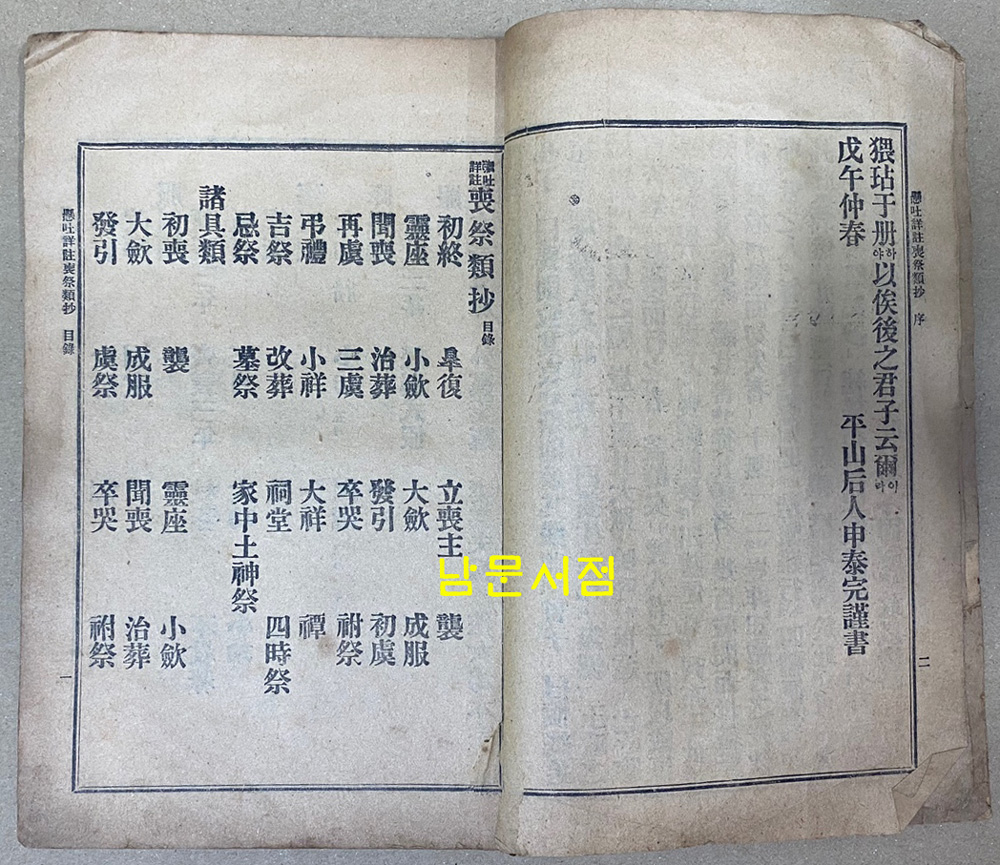 懸吐詳註喪祭類抄 序
猥玷于册하야以俟後之君子云爾이라
戊午仲春 平山后人申泰完謹書
二
懸吐詳註喪祭類抄目錄
初終 皐復 立喪主 襲
靈座 小歛 大歛 成服
聞喪 治葬 發引 初虞
再虞 三虞 卒哭 祔祭
弔禮 小祥 大祥 禫
吉祭 改葬 祠堂 四時祭
忌祭 墓祭 家中土神祭
諸具類
初喪 襲 靈座 小歛
大歛 成服 聞喪 治葬
發引 虞祭 卒哭 祔祭
懸吐詳註喪祭類抄 目錄
一
남문서점